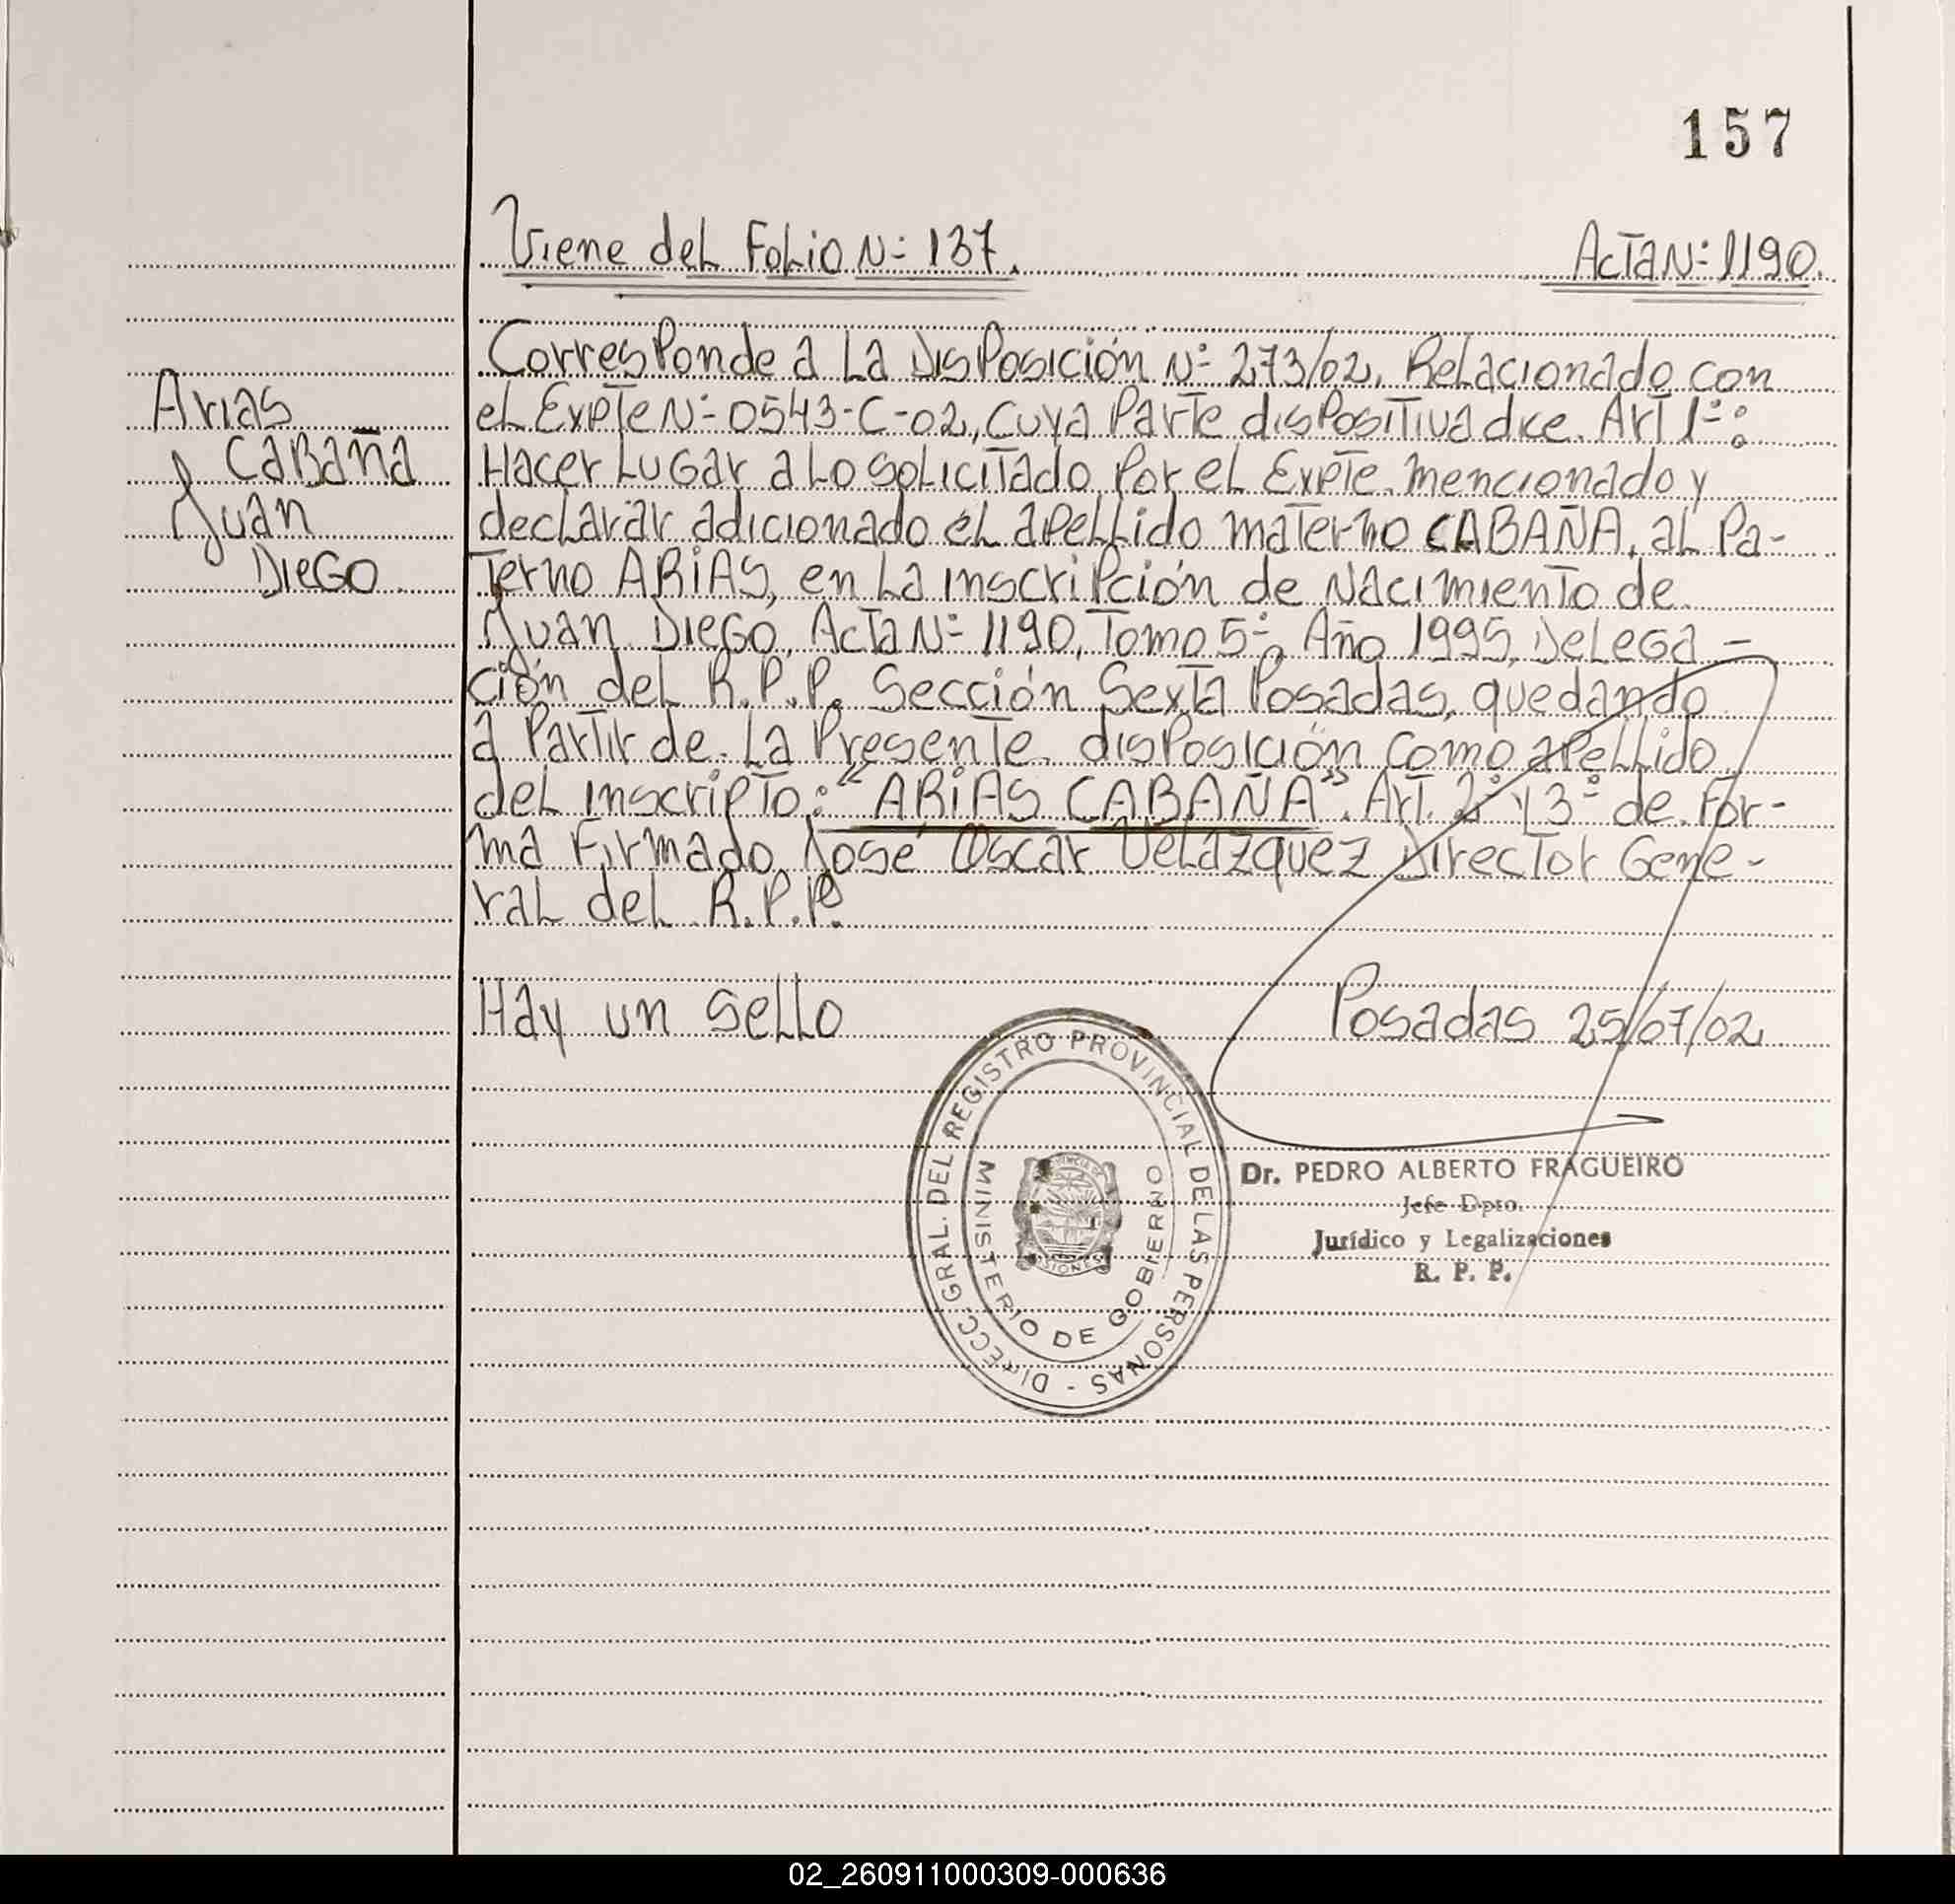 157
Viene del Folio Nº 137.
Acta Nº 1190.
Arias
Cabaña
Juan
Diego
Corresponde a la disposición Nº 273/02, Relacionado con
el Expte Nº 0543-C-02, cuya parte dispositiva dice. Art 1º:
Hacer lugar a lo solicitado por el Expte. mencionado y
declarar adicionado el apellido materno CABAÑA, al Pa-
terno ARIAS, en la inscripción de Nacimiento de
Juan Diego, Acta Nº 1190, Tomo 5º, Año 1995, Delega-
ción del R.P.P. Sección Sexta Posadas, quedando
a partir de la presente disposición como apellido
del inscripto: "ARIAS CABAÑA". Art. 2º y 3º de For-
ma Firmado José Oscar Velazquez Director Gene-
ral del R.P.P.
Hay un sello
Posadas 25/07/02
DIRECC. GRAL. DEL REGISTRO PROVINCIAL DE LAS PERSONAS -
MINISTERIO DE GOBIERNO
Dr. PEDRO ALBERTO FRAGUEIRO
Jefe Dpto.
Jurídico y Legalizaciones
R. P. P.
02_260911000309-000636